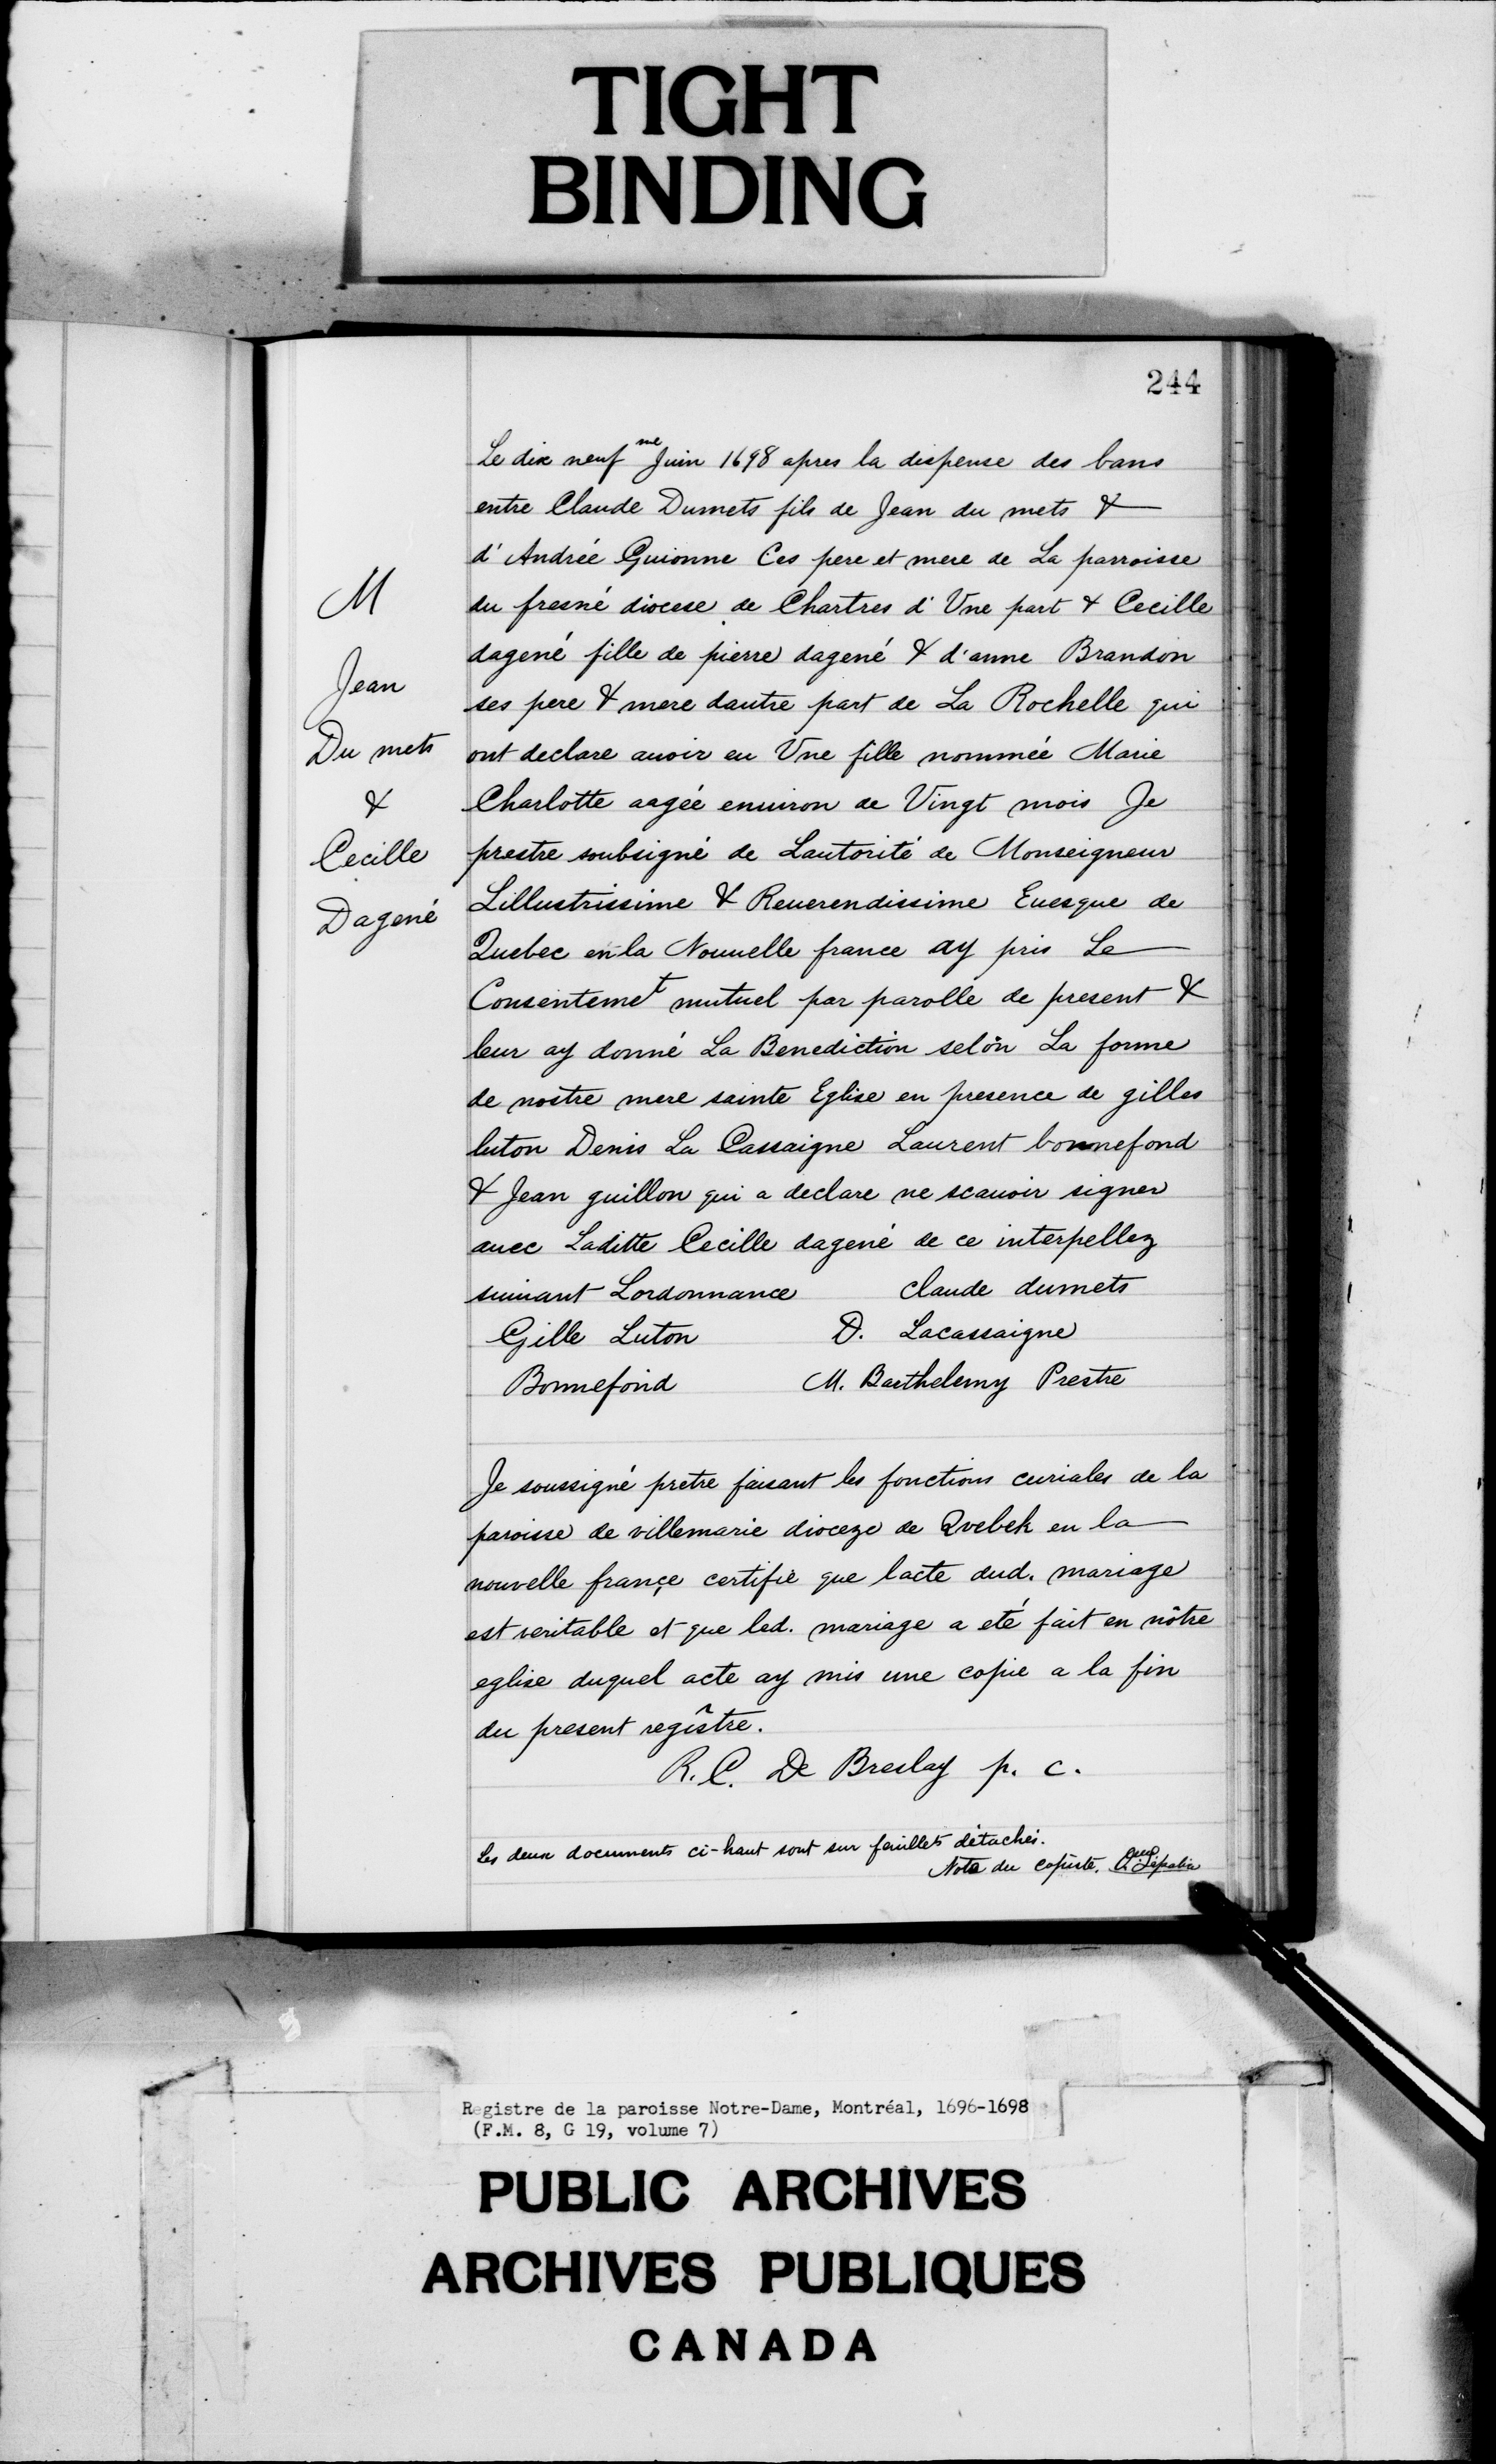 TIGHT
BINDING
244
Le dix neuf me Juin 1698 apres la dispense des bans
entre Claude Dumets fils de Jean du mets &
d'Andrée Guionne Ces pere et mere de La parroisse
du fresné diocese de Chartres d'Vne part & Cecille
dagené fille de pierre dagené & d'anne Brandon
ses pere & mere dautre part de La Rochelle qui
ont declare auoir eu Vne fille nommée Marie
Charlotte aagée enuiron de Vingt mois Je
prestre soubsigné de Lautorité de Monseigneur
Lillustrissime & Reuerendissime Euesque de
Quebec en la Nouuelle france ay pris Le
Consentemet mutuel par parolle de present &
leur ay donné La Benediction selon La forme
de nostre mere sainte Eglise en presence de gilles
luton Denis La Cassaigne Laurent bonnefond
& Jean guillon qui a declare ne scauoir signer
auec Laditte Cecille dagené de ce interpellez
suiuant Lordonnance claude dumets
Gille Luton D. Lacassaigne
Bonnefond M. Barthelemy Prestre
M
Jean
Du mets
&
Cecille
Dagené
Je soussigné pretre faisant les fonctions curiales de la
paroisse de villemarie dioceze de Qvebek en la
nouvelle françe certifie que lacte dud. mariage
est veritable et que led. mariage a eté fait en nôtre
eglise duquel acte ay mis une copie a la fin
du present regîstre.
R. C. De Breslay p. c.
Les deux documents ci-haut sont sur feuillets détachés.
Note du copiste.
Registre de la paroisse Notre-Dame, Montréal, 1696-1698
(F.M. 8, G 19, volume 7)
PUBLIC ARCHIVES
ARCHIVES PUBLIQUES
CANADA